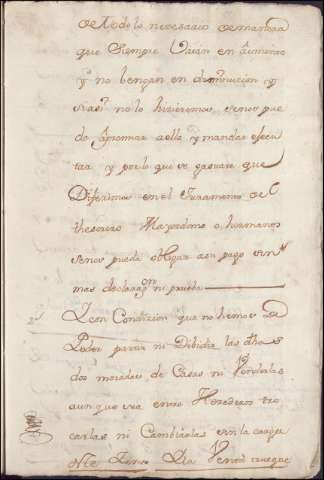 de todo lo nesesario de manera
que siempre vaian en aumento
y no bengan en diminucion y
si asi no lo hisieremos se nos pue
da apremiar a ello y mandar execu
tar y por lo que se gastare que
Diferimos en el Juramento del
thesorero Mayordomo o hermanos
se nos pueda obligar a su pago sin
mas declarasn ni prueba
Y con Condizion que no hemos de
Poder partir ni Dibidir las dhas
dos moradas de Casas ni Venderlas
aunque sea entre Herederos tro
carlas ni Cambiarlas sin la carga
deste
la Venta trueque